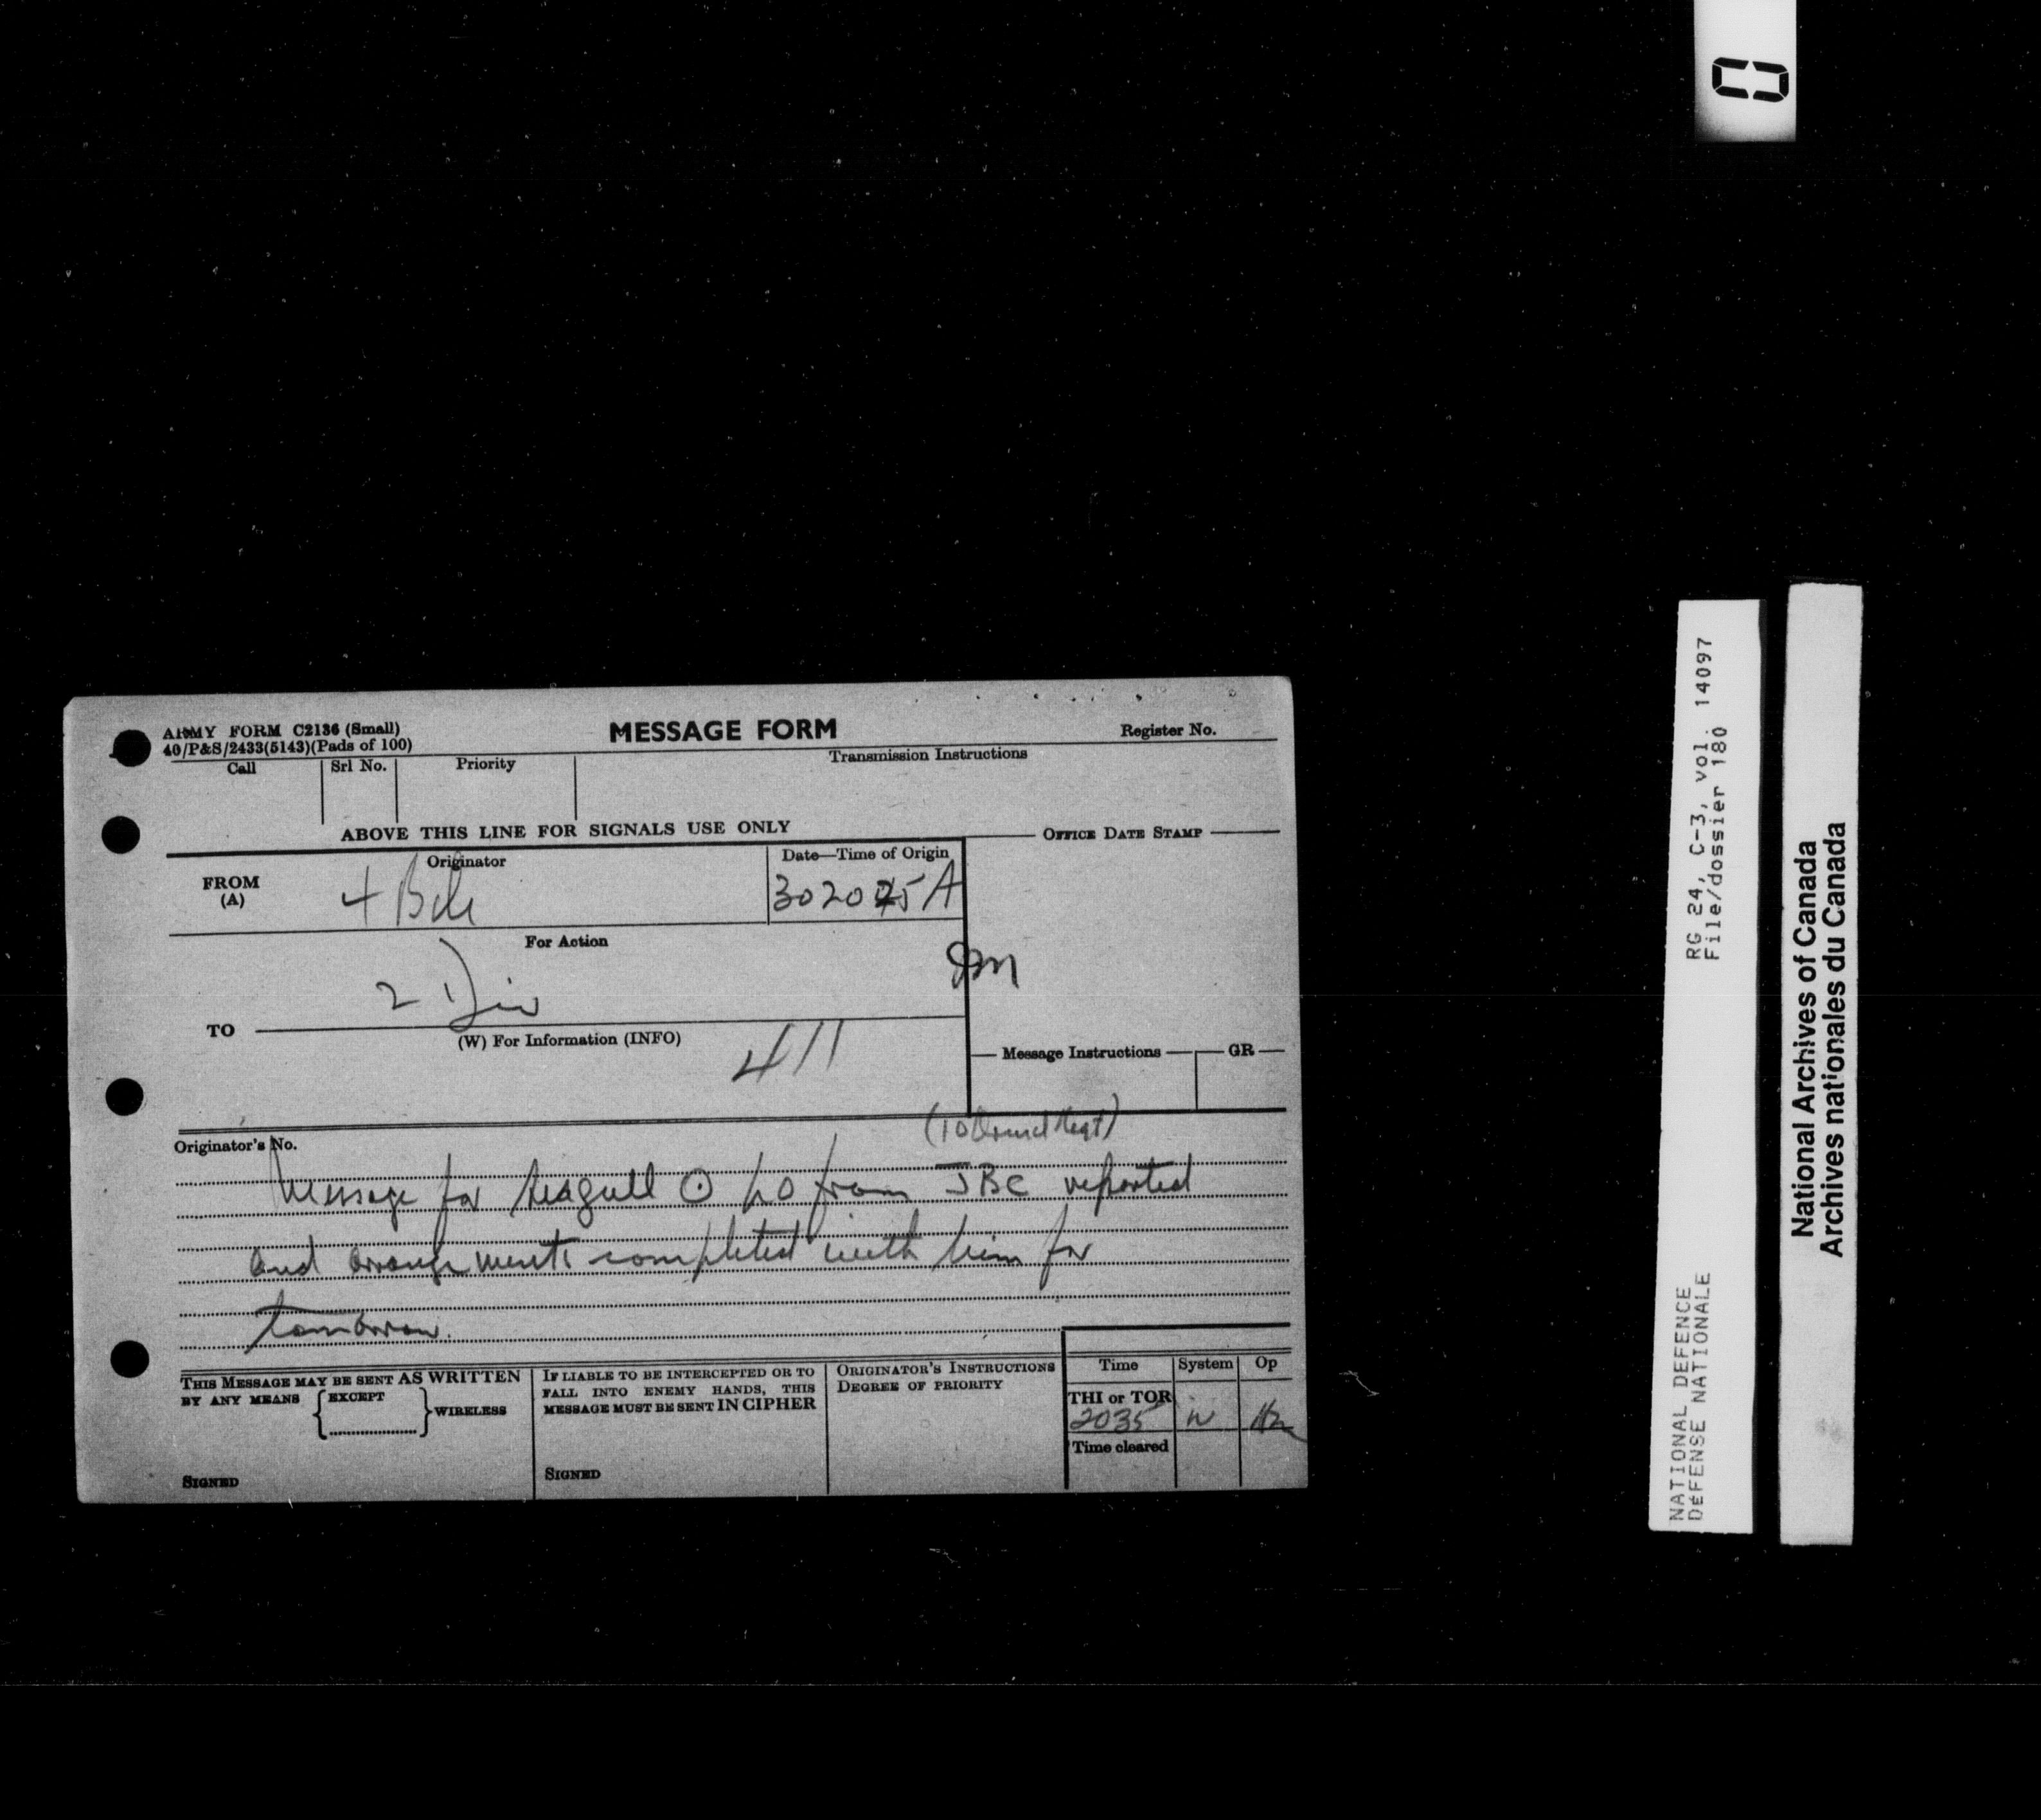 ARMY FORM C2136 (Small)
40/P&S/2433(5143)(Pads of 100)
MESSAGE FORM
Register No.
Call Srl No. Priority Transmission Instructions
ABOVE THIS LINE FOR SIGNALS USE ONLY
OFFICE DATE STAMP
FROM (A)
Originator
4 Bde
Date—Time of Origin
302025A
For Action
2 Div
TO
(W) For Information (INFO)
411
Message Instructions GR
Originator's No.
(10 Armd Regt)
Message for Seagull ⊙ LO from JBC reported
and arrangements completed with him for
tomorrow.
THIS MESSAGE MAY BE SENT AS WRITTEN
BY ANY MEANS { EXCEPT } WIRELESS
SIGNED
IF LIABLE TO BE INTERCEPTED OR TO
FALL INTO ENEMY HANDS, THIS
MESSAGE MUST BE SENT IN CIPHER
SIGNED
ORIGINATOR'S INSTRUCTIONS
DEGREE OF PRIORITY
Time System Op
THI or TOR
2035 W
Time cleared
NATIONAL DEFENCE RG 24, C-3, vol. 14097
DéFENSE NATIONALE File/dossier 180
National Archives of Canada
Archives nationales du Canada